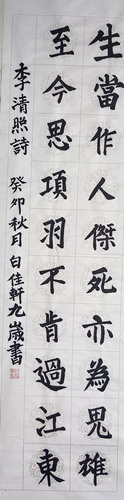 生當作人傑死亦為鬼雄
至今思項羽不肯過江東
李清照詩 癸卯秋月 白佳軒九歲書